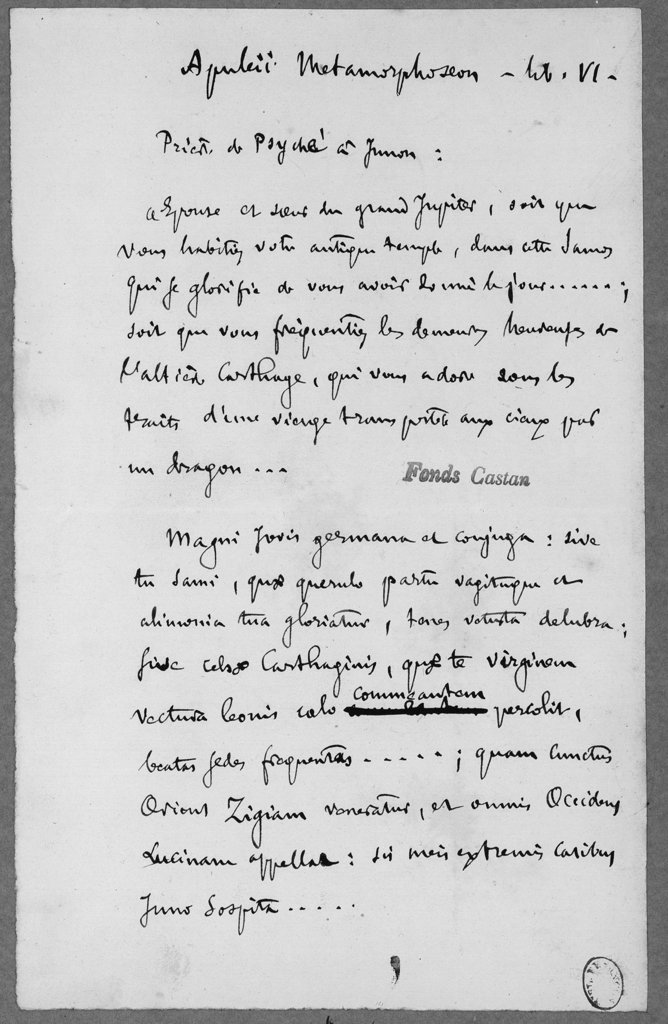 Apuleii Metamorphoseon - lib. VI -
Prière de Psyché à Junon :
"Epouse et sœur du grand Jupiter, soit que
vous habitiez votre antique temple, dans cette Samos
qui se glorifie de vous avoir donné le jour...... ;
soit que vous fréquentiez les demeures heureuses de
l'altière Carthage, qui vous adore sous les
traits d'une vierge transportée aux cieux par
un dragon ...
Fonds Castan
Magni Jovis germana et conjuga : sive
tu Sami, quæ querulo partu vagituque et
alimonia tua gloriatur, tenes vetusta delubra ;
sive celsæ Carthaginis, quæ te virginem
vectura leonis cœlo commeantem percolit,
beatas sedes frequentas ..... ; quam cunctus
Oriens Zigiam veneratur, et omnis Occidens
Lucinam appellat : sis meis extremis casibus
Juno Sospita .....